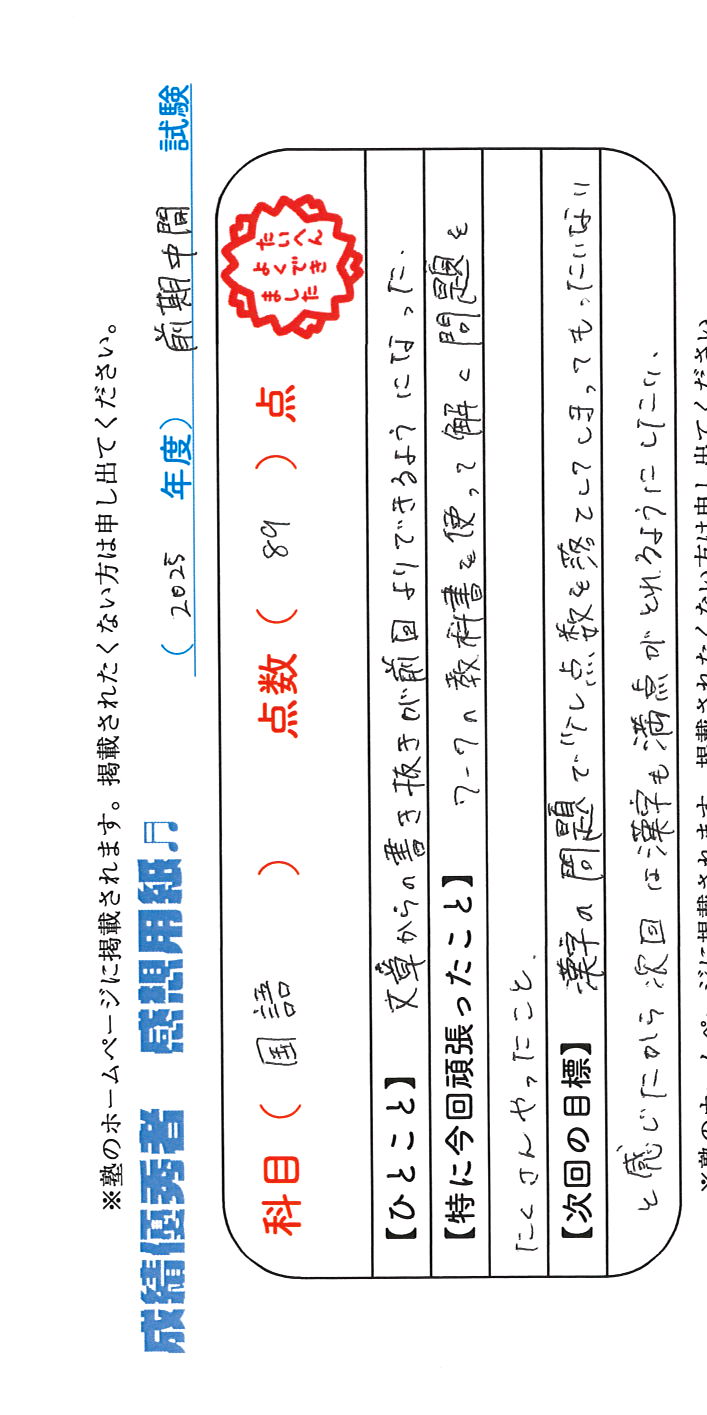 ※塾のホームページに掲載されます。掲載されたくない方は申し出てください。
成績優秀者 感想用紙♫ (2025 年度) 前期中間 試験
科目(国語) 点数(89)点
たいへん
よくでき
ました
【ひとこと】 文章からの書き抜きが前回よりできるようになった.
【特に今回頑張ったこと】 ワークの教科書を使って解く問題を
たくさんやったこと.
【次回の目標】 漢字の問題で少し点数を落としてしまってもったいない
と感じたから次回は漢字も満点がとれるようにしたい.